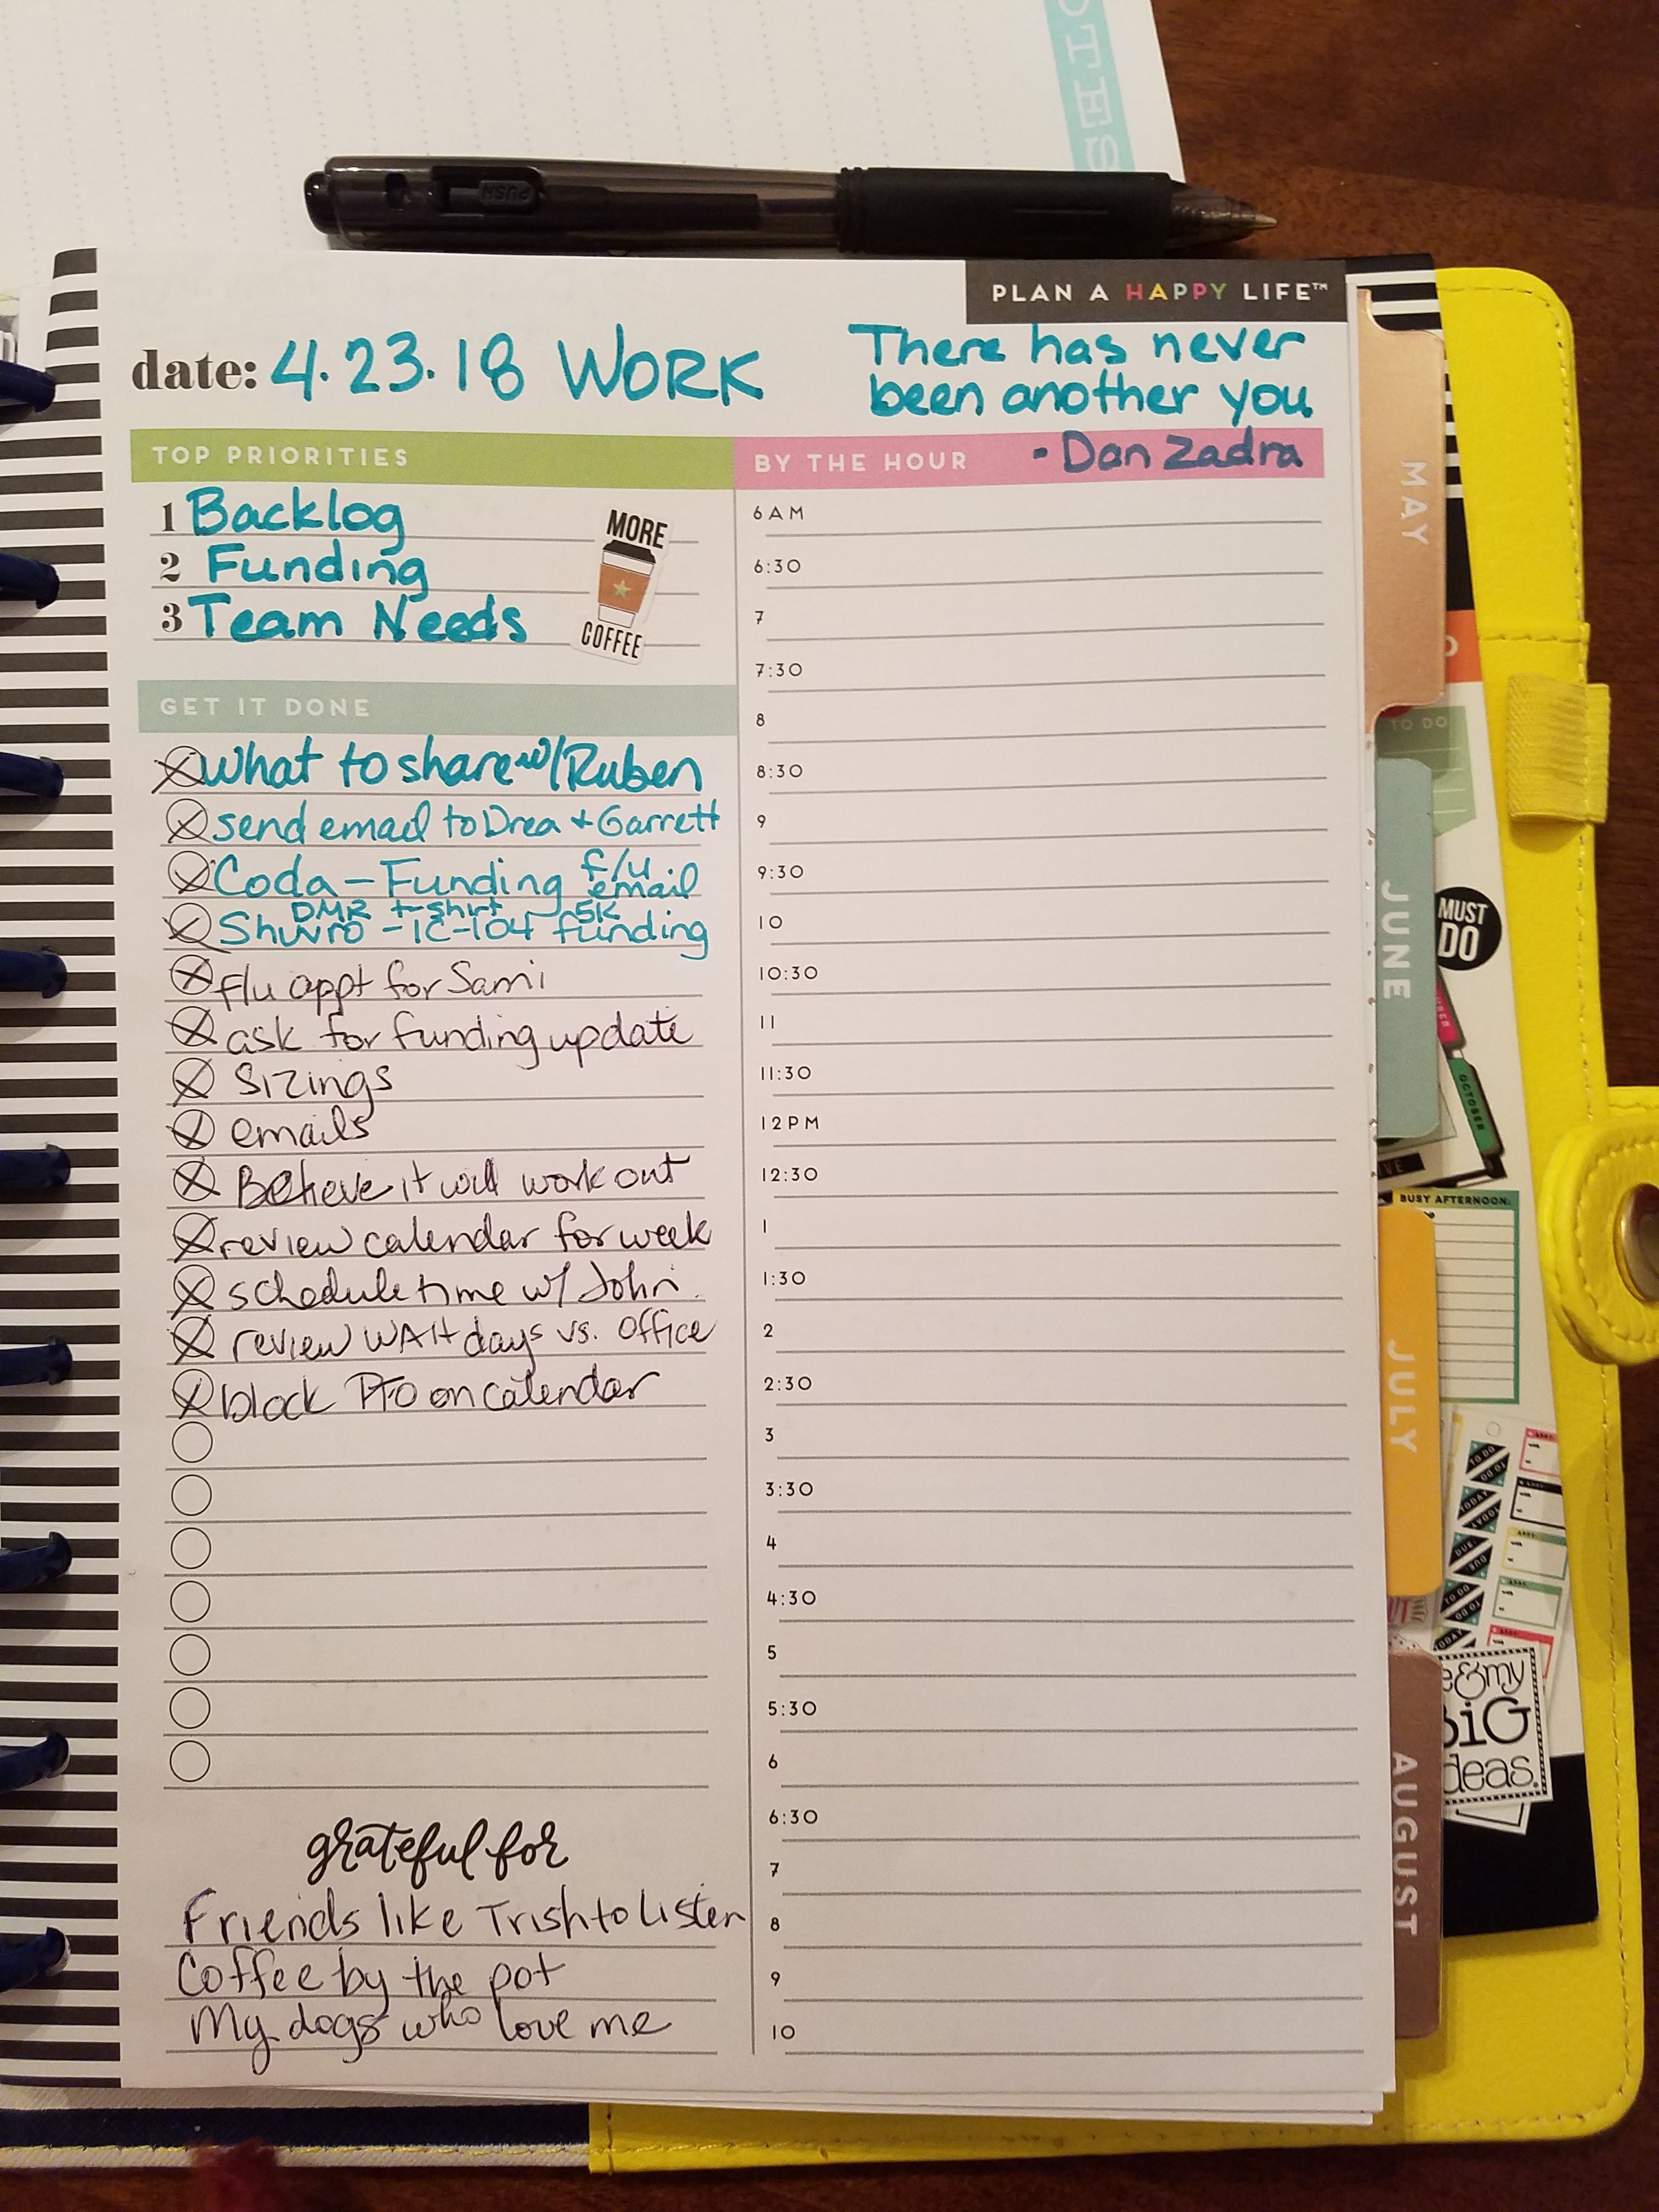 OTES
PUSH
PLAN A HAPPY LIFE™
date: 4.23.18 WORK
There has never
been another you
- Dan Zadra
TOP PRIORITIES
1 Backlog
2 Funding
3 Team Needs
MORE
COFFEE
GET IT DONE
What to share w/Ruben
send email to Drea + Garrett
Coda - Funding f/u email
DMR t-shirt 5K
- IC-104 funding
flu appt for Sami
ask for funding update
sizings
emails
Believe it will work out
review calendar for week
schedule time w/ John.
review WAH days vs. office
block PTO on calendar
grateful for
Friends like Trish to listen
Coffee by the pot
My dogs who love me
BY THE HOUR
6AM
6:30
7
7:30
8
8:30
9
9:30
10
10:30
11
11:30
12PM
12:30
1
1:30
2
2:30
3
3:30
4
4:30
5
5:30
6
6:30
7
8
9
10
MAY
JUNE
JULY
AUGUST
TO DO
MUST
DO
OCTOBER
BUSY AFTERNOON:
TO DO
TO DO
TODAY
TODAY
DUE
DUE
TO DO
TO DO
TODAY
e&my
BiG
deas.